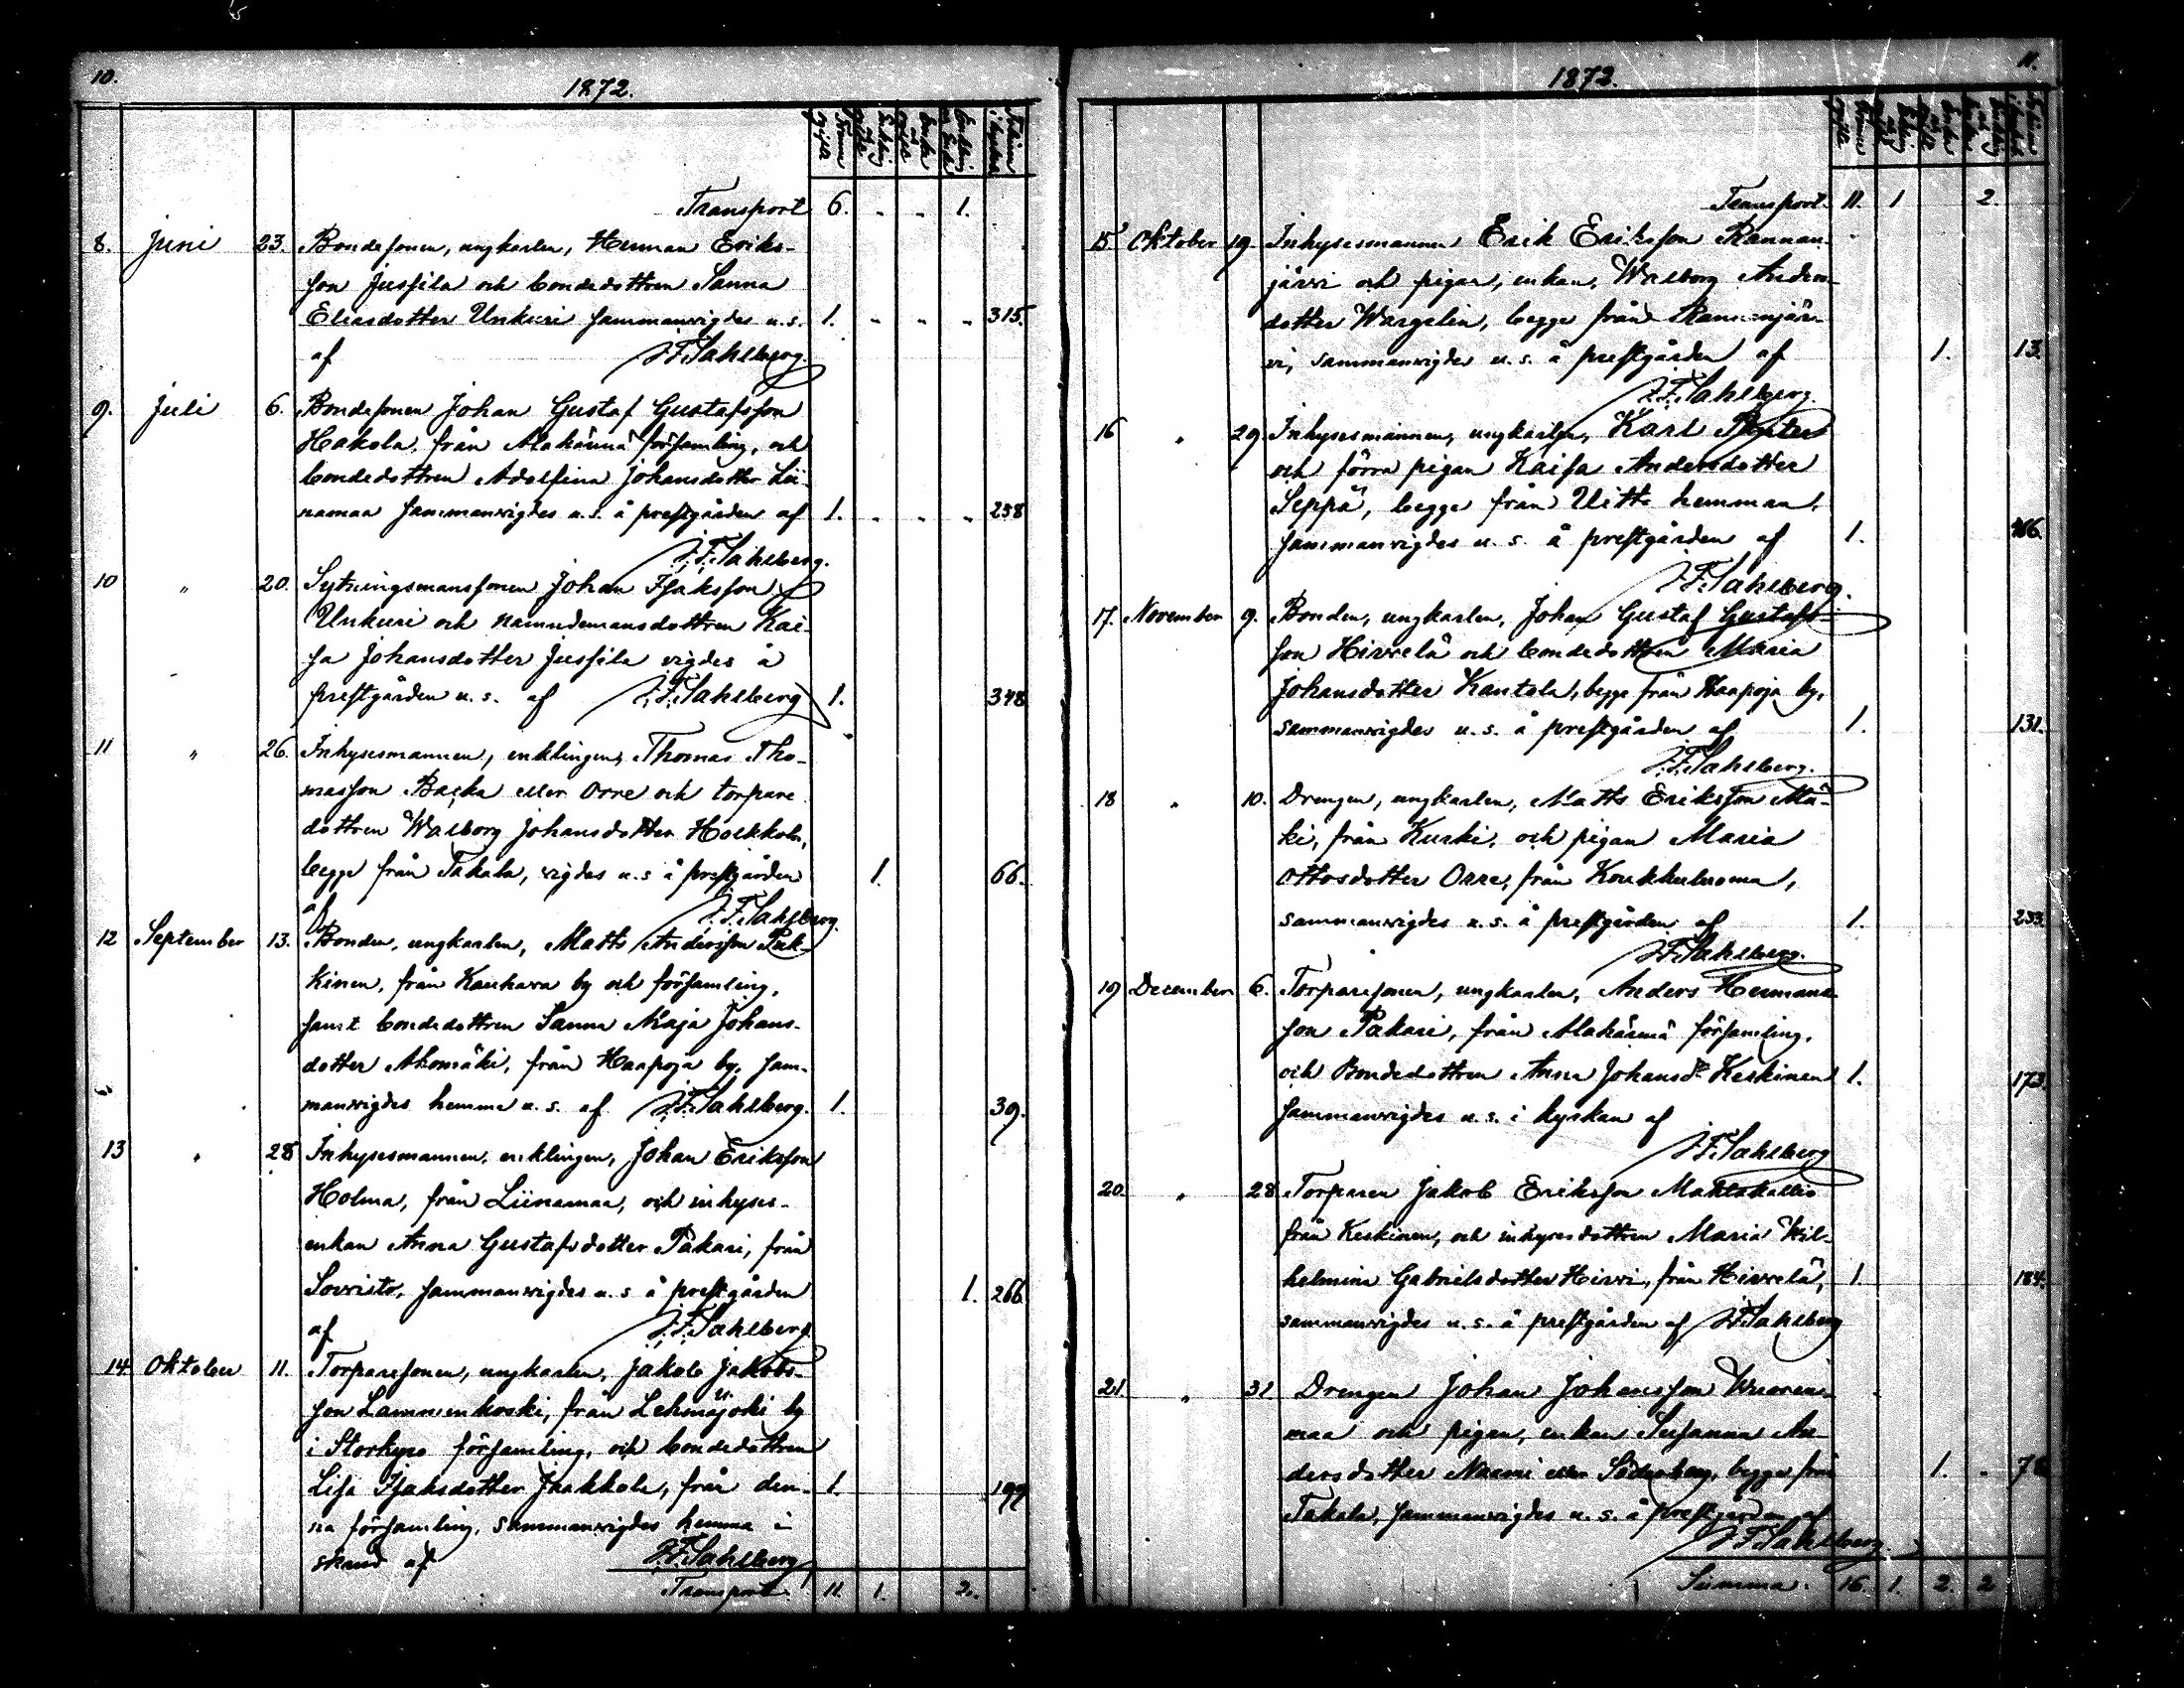 10.
1872.
Transport 6. " " 1.
8. Juni 23. Bondesonen, ungkarlen, Herman Eriks-
son Jussila och bondedottren Sanna
Eliasdotter Unkuri sammanvigdes u.s. 1. " " " 315.
af J.F. Sahlberg.
9. Juli 6. Bondesonen Johan Gustaf Gustafsson
Hakola, från Alahärmä församling, och
bondedottren Adolfina Johansdotter Lii-
namaa sammanvigdes u.s. å prestgården af 1. " " " 258
J.F. Sahlberg.
10 " 20. Sytningsmanssonen Johan Isaksson
Unkuri och nämndemansdottren Kai-
sa Johansdotter Jussila vigdes å
prestgården u.s. af J.F. Sahlberg 1. 348
11 " 26. Inhysesmannen, enklingen, Thomas Tho-
masson Backa eller Orre och torpare
dottren Walborg Johansdotter Holkkola,
begge från Takala, vigdes u.s. å prestgården 1. 66.
af J.F. Sahlberg.
12 September 13. Bonden, ungkarlen, Matts Andersson Puk-
kinen, från Kauhava by och församling,
samt bondedottren Sanna Maja Johans-
dotter Ahomäki, från Haapoja by, sam-
manvigdes hemma u.s. af J.F. Sahlberg. 1. 39.
13 " 28 Inhysesmannen, enklingen, Johan Eriksson
Holma, från Liinamaa, och inhyses-
enkan Anna Gustafsdotter Pakari, från
Sorvisto, sammanvigdes u.s. å prestgården 1. 266.
af J.F. Sahlberg
14 Oktober 11. Torparesonen, ungkarlen, Jakob Jakobs-
son Lammenkoski, från Lehmäjoki by
i Storkyro församling, och bondedottren
Lisa Isaksdotter Jaakkola, från den- 1. 199
na församling, sammanvigdes hemma i
af J.F. Sahlberg
Transport 11. 1. 2.
11.
1872.
Transport. 11. 1 2.
15 Oktober 19. Inhysesmannen Erik Eriksson Rannan-
järvi och pigan, enkan, Walborg Anders-
dotter Wargelin, begge från Rannanjär-
vi, sammanvigdes u.s. å prestgården af 1. 13.
J.F. Sahlberg.
16 " 29. Inhysesmannen, ungkarlen, Karl
och förra pigan Kaisa Andersdotter
Seppä, begge från Uitto hemman,
sammanvigdes u.s. å prestgården af 1.
J.F. Sahlberg.
17. November 9. Bonden, ungkarlen, Johan Gustaf Gustafs-
son Hirvelä och bondedottren Maria
Johansdotter Kantola, begge från Haapoja by,
sammanvigdes u.s. å prestgården af 1. 131.
J.F. Sahlberg.
18 " 10. Drengen, ungkarlen, Matts Eriksson Mä-
ki, från Kurki, och pigan Maria
Ottosdotter Orre, från Koukkuluoma,
sammanvigdes u.s. å prestgården af 1. 233.
J.F. Sahlberg.
19 December 6. Torparesonen, ungkarlen, Anders Hermans-
son Pakari, från Alahärmä församling,
och Bondedottren Anna Johansdr Keskinen 1. 173.
sammanvigdes u.s. i kyrkan af
J.F. Sahlberg
20. " 28 Torparen Jakob Eriksson Mahlakallio
från Keskinen, och inhysesdottren Maria Wil-
helmina Gabrielsdotter Hirvi, från Hirvelä, 1. 184.
sammanvigdes u.s. å prestgården af J.F. Sahlberg
21. " 31 Drengen Johan Johansson Wuoren-
maa och pigan, enkan Susanna An-
dersdotter Niemi eller Söderberg, begge från 1. "
Takala, sammanvigdes u.s. å prestgården af
J.F. Sahlberg.
Summa. 16. 1. 2. 2